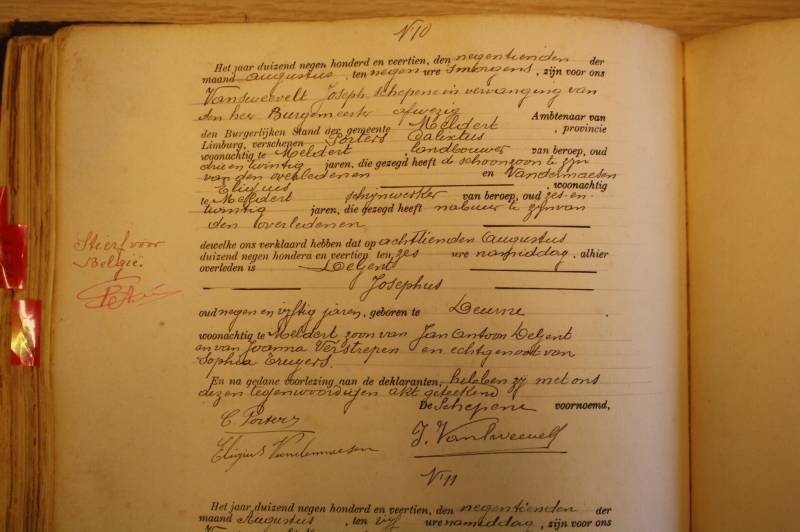 N 10
Het jaar duizend negen honderd en veertien, den negentienden der
maand augustus, ten negen ure smorgens, zijn voor ons
Vansweevelt Joseph schepene in vervanging van
den heer Burgemeester afwezig Ambtenaar van
den Burgerlijken Stand der gemeente Meldert, provincie
Limburg, verschenen Porters Calixtus
woonachtig te Meldert, landbouwer van beroep, oud
drie en twintig jaren, die gezegd heeft de schoonzoon te zijn
van den overledenen en Vandermaesen
Eligius, woonachtig
te Meldert schijnwerker van beroep, oud zes en
twintig jaren, die gezegd heeft nabuur te zijn van
den overledenen
dewelke ons verklaard hebben dat op achttienden Augustus
duizend negen honderd en veertien ten zes ure namiddag, alhier
overleden is Deljent
Josephus
oud negen en vijftig jaren, geboren te Deurne
woonachtig te Meldert zoon van Jan Antoon Deljent
en van Joanna Verstrepen en echtgenoot van
Sophia Cruyers.
En na gedane voorlezing aan de deklaranten, hebben zij met ons
dezen tegenwoordigen akt geteekend
De Schepene voornoemd,
C. Porters
J. Vansweevelt
Eligius Vandermaesen
Stierf voor
België.
N 11
Het jaar duizend negen honderd en veertien, den negentienden der
maand Augustus, ten vijf ure namiddag, zijn voor ons